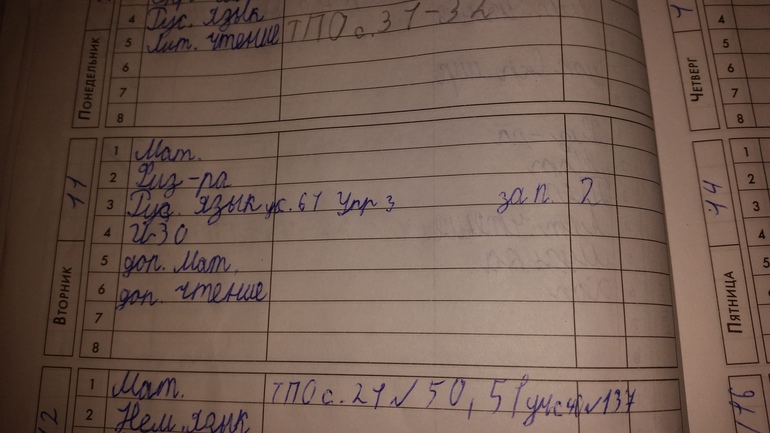 ПОНЕДЕЛЬНИК
4 Рус. язык
5 Лит. чтение ТПО с. 31-32
6
7
8
ВТОРНИК 11
1 Мат.
2 Физ-ра
3 Рус. язык ус. 61 Упр 3 зап. 2
4 ИЗО
5 доп. мат.
6 доп. чтение
7
8
12
1 Мат. ТПО с. 21 № 50, 51 уч с 40 № 137
2 Нем. язык
ЧЕТВЕРГ
6
7
8
ПЯТНИЦА 14
1
2
3
4
5
6
7
8
1
2